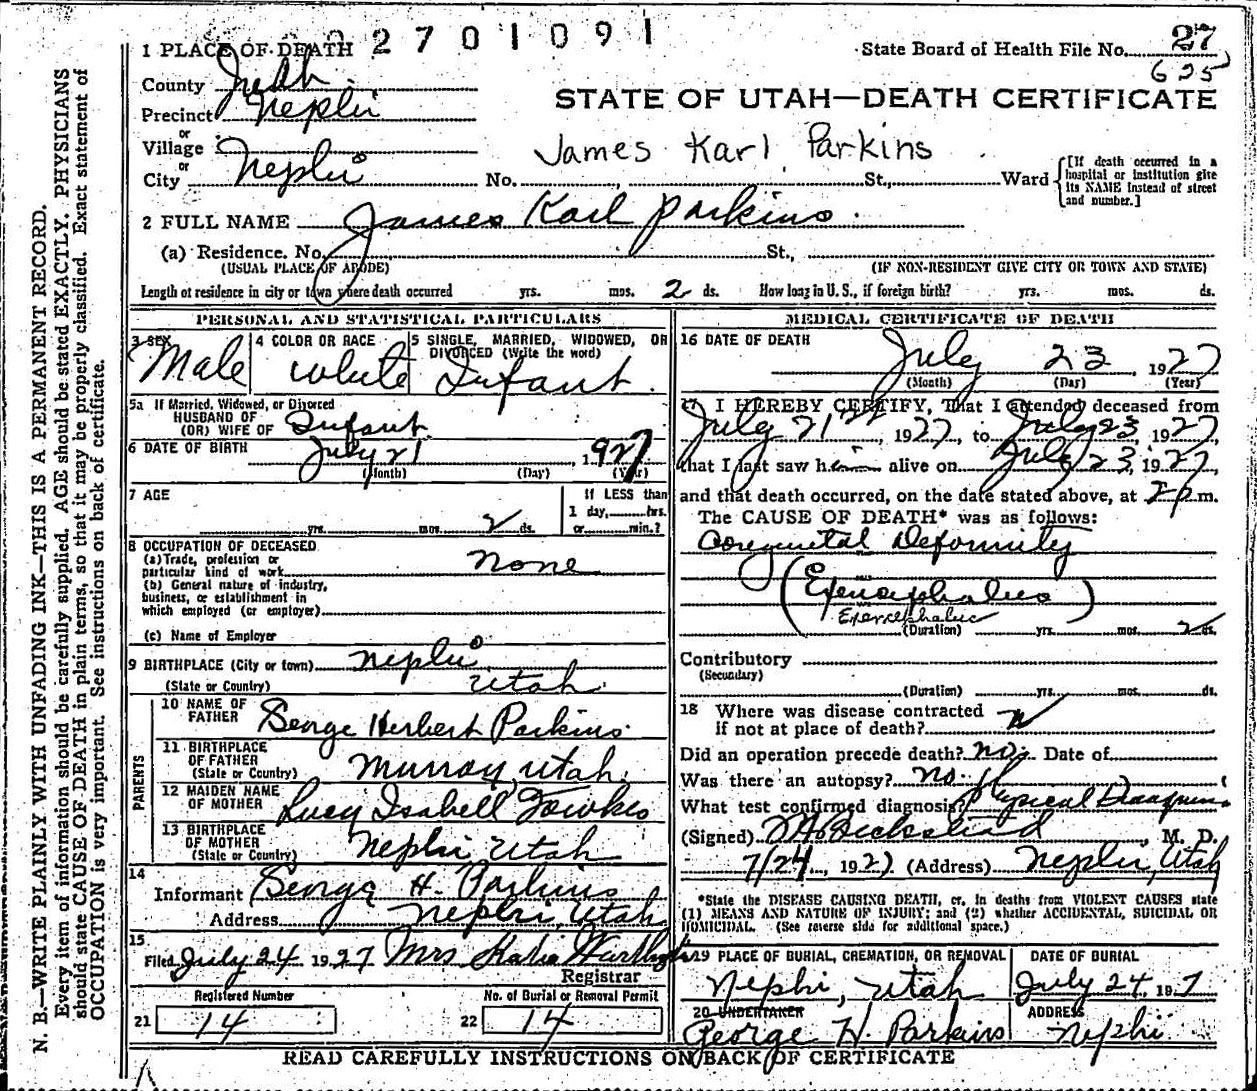 2 7 0 1 0 9 1
1 PLACE OF DEATH
State Board of Health File No. 27
625
County Juab
STATE OF UTAH—DEATH CERTIFICATE
Precinct Nephi
or
Village
James Karl Parkins
or
City Nephi No. St., Ward
[If death occurred in a hospital or institution give its NAME instead of street and number.]
2 FULL NAME James Karl Parkins
(a) Residence. No. St.,
(USUAL PLACE OF ABODE) (IF NON-RESIDENT GIVE CITY OR TOWN AND STATE)
Length of residence in city or town where death occurred yrs. mos. 2 ds. How long in U. S., if foreign birth? yrs. mos. ds.
PERSONAL AND STATISTICAL PARTICULARS
3 SEX Male
4 COLOR OR RACE White
5 SINGLE, MARRIED, WIDOWED, OR DIVORCED (Write the word) Infant
5a If Married, Widowed, or Divorced
HUSBAND OF
(OR) WIFE OF Infant
6 DATE OF BIRTH July 21 1927
(Month) (Day) (Year)
7 AGE
yrs. mos. 2 ds.
If LESS than
1 day, hrs.
or min.?
8 OCCUPATION OF DECEASED
(a) Trade, profession or
particular kind of work None
(b) General nature of industry,
business, or establishment in
which employed (or employer)
(c) Name of Employer
9 BIRTHPLACE (City or town) Nephi
(State or Country) Utah
PARENTS
10 NAME OF
FATHER George Herbert Parkins
11 BIRTHPLACE
OF FATHER
(State or Country) Murray, Utah.
12 MAIDEN NAME
OF MOTHER Lucy Isabell Fowkes
13 BIRTHPLACE
OF MOTHER
(State or Country) Nephi Utah
14
Informant George H. Parkins
Address Nephi, Utah
15
Filed July 24 1927 Mrs Katie
Registrar
Registered Number
21 14
No. of Burial or Removal Permit
22 14
MEDICAL CERTIFICATE OF DEATH
16 DATE OF DEATH
July 23 1927
(Month) (Day) (Year)
17 I HEREBY CERTIFY, That I attended deceased from
July 21st, 1927, to July 23 1927
that I last saw him alive on July 23, 1927
and that death occurred, on the date stated above, at 2 p m.
The CAUSE OF DEATH* was as follows:
Congenital Deformity
(Exencephalus)
Exencephalus
(Duration) yrs. mos. 2 ds.
Contributory
(Secondary)
(Duration) yrs. mos. ds.
18 Where was disease contracted
if not at place of death?
Did an operation precede death? No. Date of
Was there an autopsy? No.
What test confirmed diagnosis? Physical Diagnosis
(Signed) Beckstead, M. D.
7/24, 1927 (Address) Nephi, Utah
*State the DISEASE CAUSING DEATH, or, in deaths from VIOLENT CAUSES state
(1) MEANS AND NATURE OF INJURY; and (2) whether ACCIDENTAL, SUICIDAL OR
HOMICIDAL. (See reverse side for additional space.)
19 PLACE OF BURIAL, CREMATION, OR REMOVAL
Nephi, Utah
DATE OF BURIAL
July 24, 1927
20 UNDERTAKER
George H. Parkins
ADDRESS
Nephi
READ CAREFULLY INSTRUCTIONS ON BACK OF CERTIFICATE
N. B.—WRITE PLAINLY WITH UNFADING INK—THIS IS A PERMANENT RECORD.
Every item of information should be carefully supplied. AGE should be stated EXACTLY. PHYSICIANS
should state CAUSE OF DEATH in plain terms, so that it may be properly classified. Exact statement of
OCCUPATION is very important. See instructions on back of certificate.